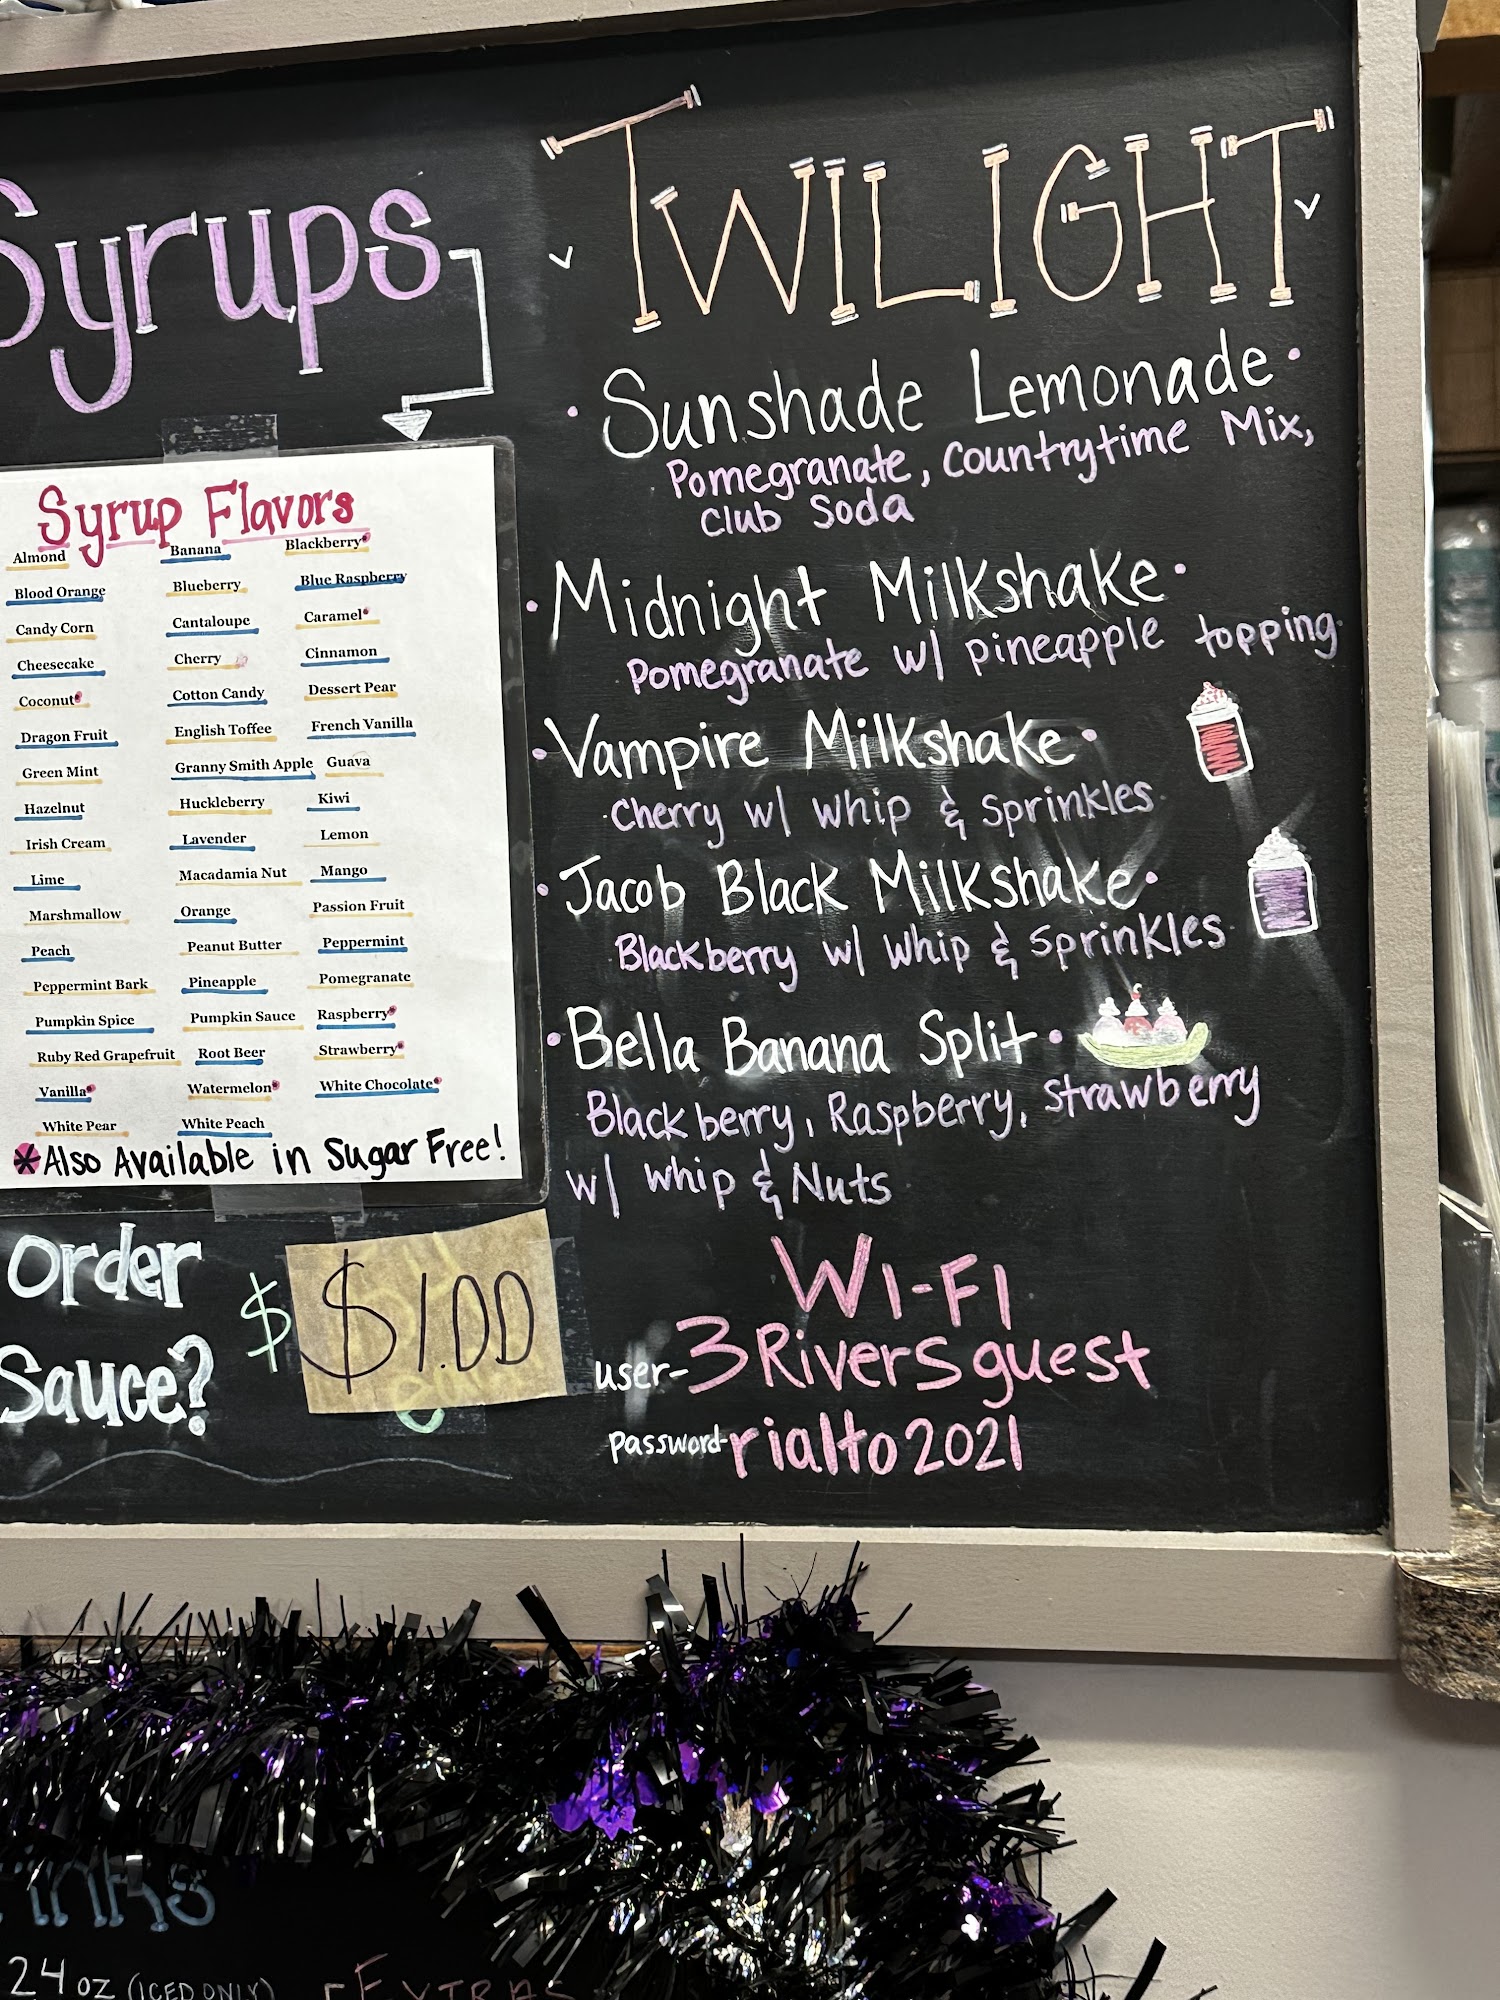 Syrups
Syrup Flavors
Almond Banana Blackberry*
Blood Orange Blueberry Blue Raspberry
Candy Corn Cantaloupe Caramel*
Cheesecake Cherry Cinnamon
Coconut* Cotton Candy Dessert Pear
Dragon Fruit English Toffee French Vanilla
Green Mint Granny Smith Apple Guava
Hazelnut Huckleberry Kiwi
Irish Cream Lavender Lemon
Lime Macadamia Nut Mango
Marshmallow Orange Passion Fruit
Peach Peanut Butter Peppermint
Peppermint Bark Pineapple Pomegranate
Pumpkin Spice Pumpkin Sauce Raspberry*
Ruby Red Grapefruit Root Beer Strawberry*
Vanilla* Watermelon* White Chocolate*
White Pear White Peach
*Also Available in Sugar Free!
Order
Sauce?
$ $1.00
TWILIGHT
Sunshade Lemonade
Pomegranate, Countrytime Mix,
Club Soda
Midnight Milkshake
Pomegranate w/ pineapple topping
Vampire Milkshake
Cherry w/ whip & Sprinkles
Jacob Black Milkshake
Blackberry w/ whip & Sprinkles
Bella Banana Split
Blackberry, Raspberry, Strawberry
w/ whip & Nuts
WI-FI
user-3Riversguest
password-rialto2021
24 oz (ICED ONLY)
EXTRAS